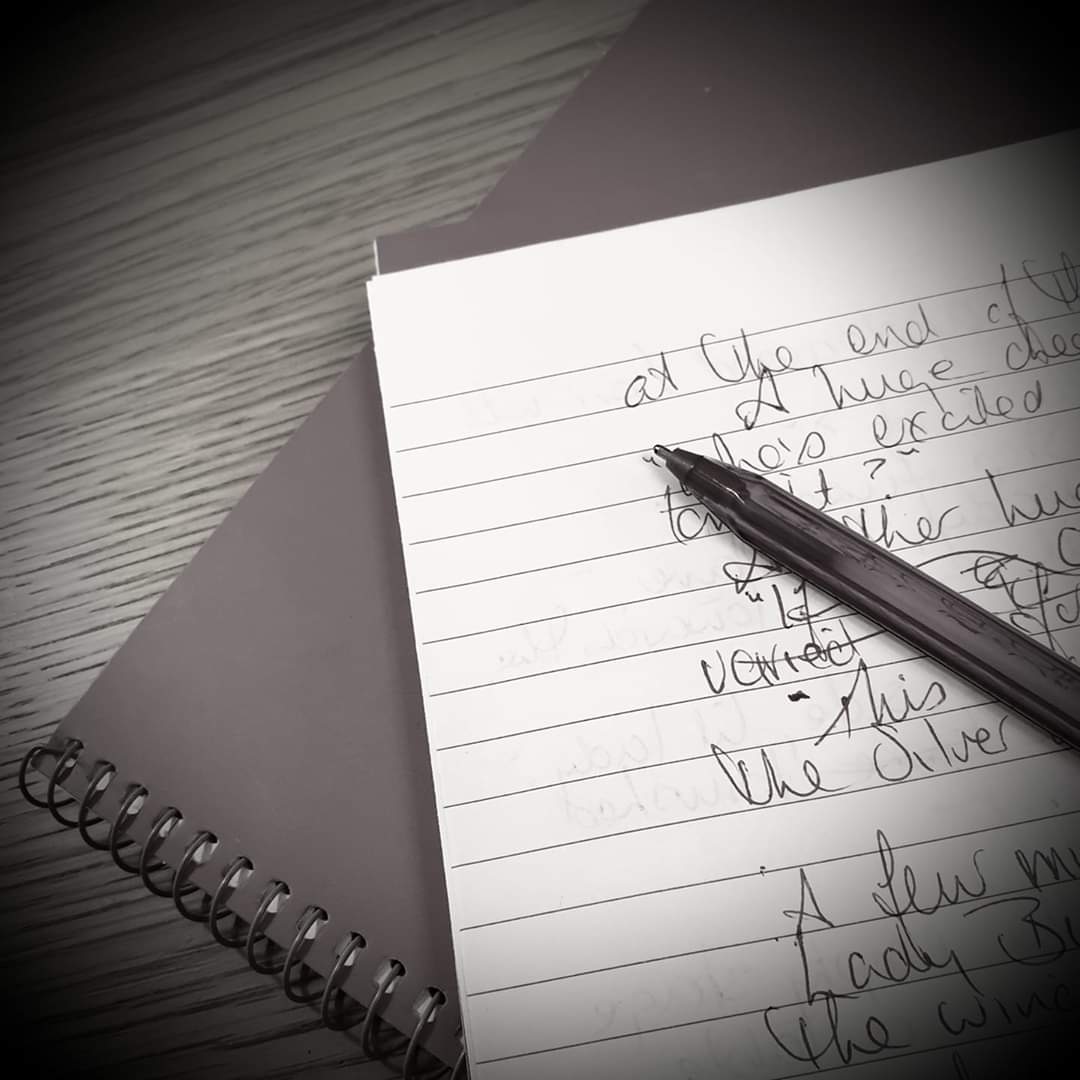 at the end of th
A huge chee
"Who's excited
it?"
other hu
"If
verdict
"This
the Silver
A few m
Lady Bu
the win